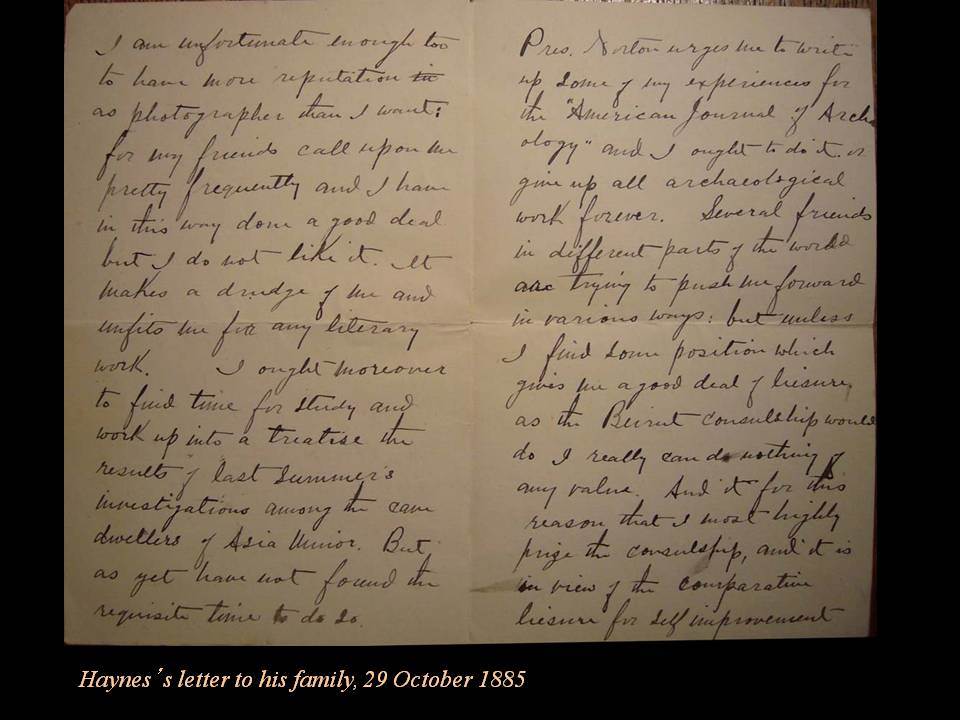 I am unfortunate enough too
to have more reputation in
as photographer than I want:
for my friends call upon me
pretty frequently and I have
in this way done a good deal
but I do not like it. It
makes a drudge of me and
unfits me for any literary
work. I ought moreover
to find time for study and
work up into a treatise the
results of last summer's
investigations among the cave
dwellers of Asia Minor. But,
as yet have not found the
requisite time to do so.
Pres. Norton urges me to write
up some of my experiences for
the "American Journal of Archa
ology" and I ought to do it. or
give up all archaeological
work forever. Several friends
in different parts of the world
are trying to push me forward
in various ways: but unless
I find some position which
gives me a good deal of liesure,
as the Beirut consulship would
do I really can do nothing of
any value. And it for this
reason that I most highly
prize the consulship, and it is
in view of the comparative
liesure for self improvement
Haynes´s letter to his family, 29 October 1885